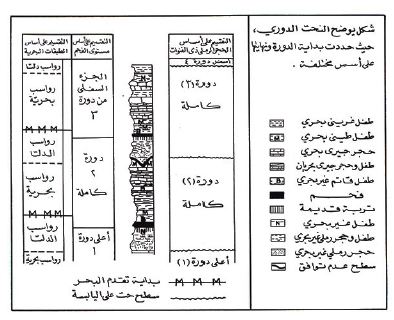 شكل يوضح النحت الدوري،
حيث حددت بداية الدورة ونهايتها
على أسس مختلفة.
طفل غريني بحري
طفل طيني بحري
حجر جيري بحري
طفل وحجر جيري بحريان
طفل قاتم غير بحري
فحم
تربة قديمة
طفل غير بحري
طفل وحجر رملي غير بحري
حجر رملي غير بحري
سطح عدم توافق
التقسيم على أساس
الحجر الرملي ذي القنوات
أسفل دورة ٤
دورة (٣)
كاملة
دورة (٢)
كاملة
أعلى دورة (١)
التقسيم على أساس
مستوى الفحم
الجزء
السفلي
من دورة
٣
دورة
٢
كاملة
أعلى دورة
١
التقسيم على أساس
الطبقات البحرية
رواسب دلتا
رواسب
بحرية
رواسب
الدلتا
رواسب
بحرية
رواسب
الدلتا
رواسب بحرية
بداية تقدم البحر
سطح حت على اليابسة